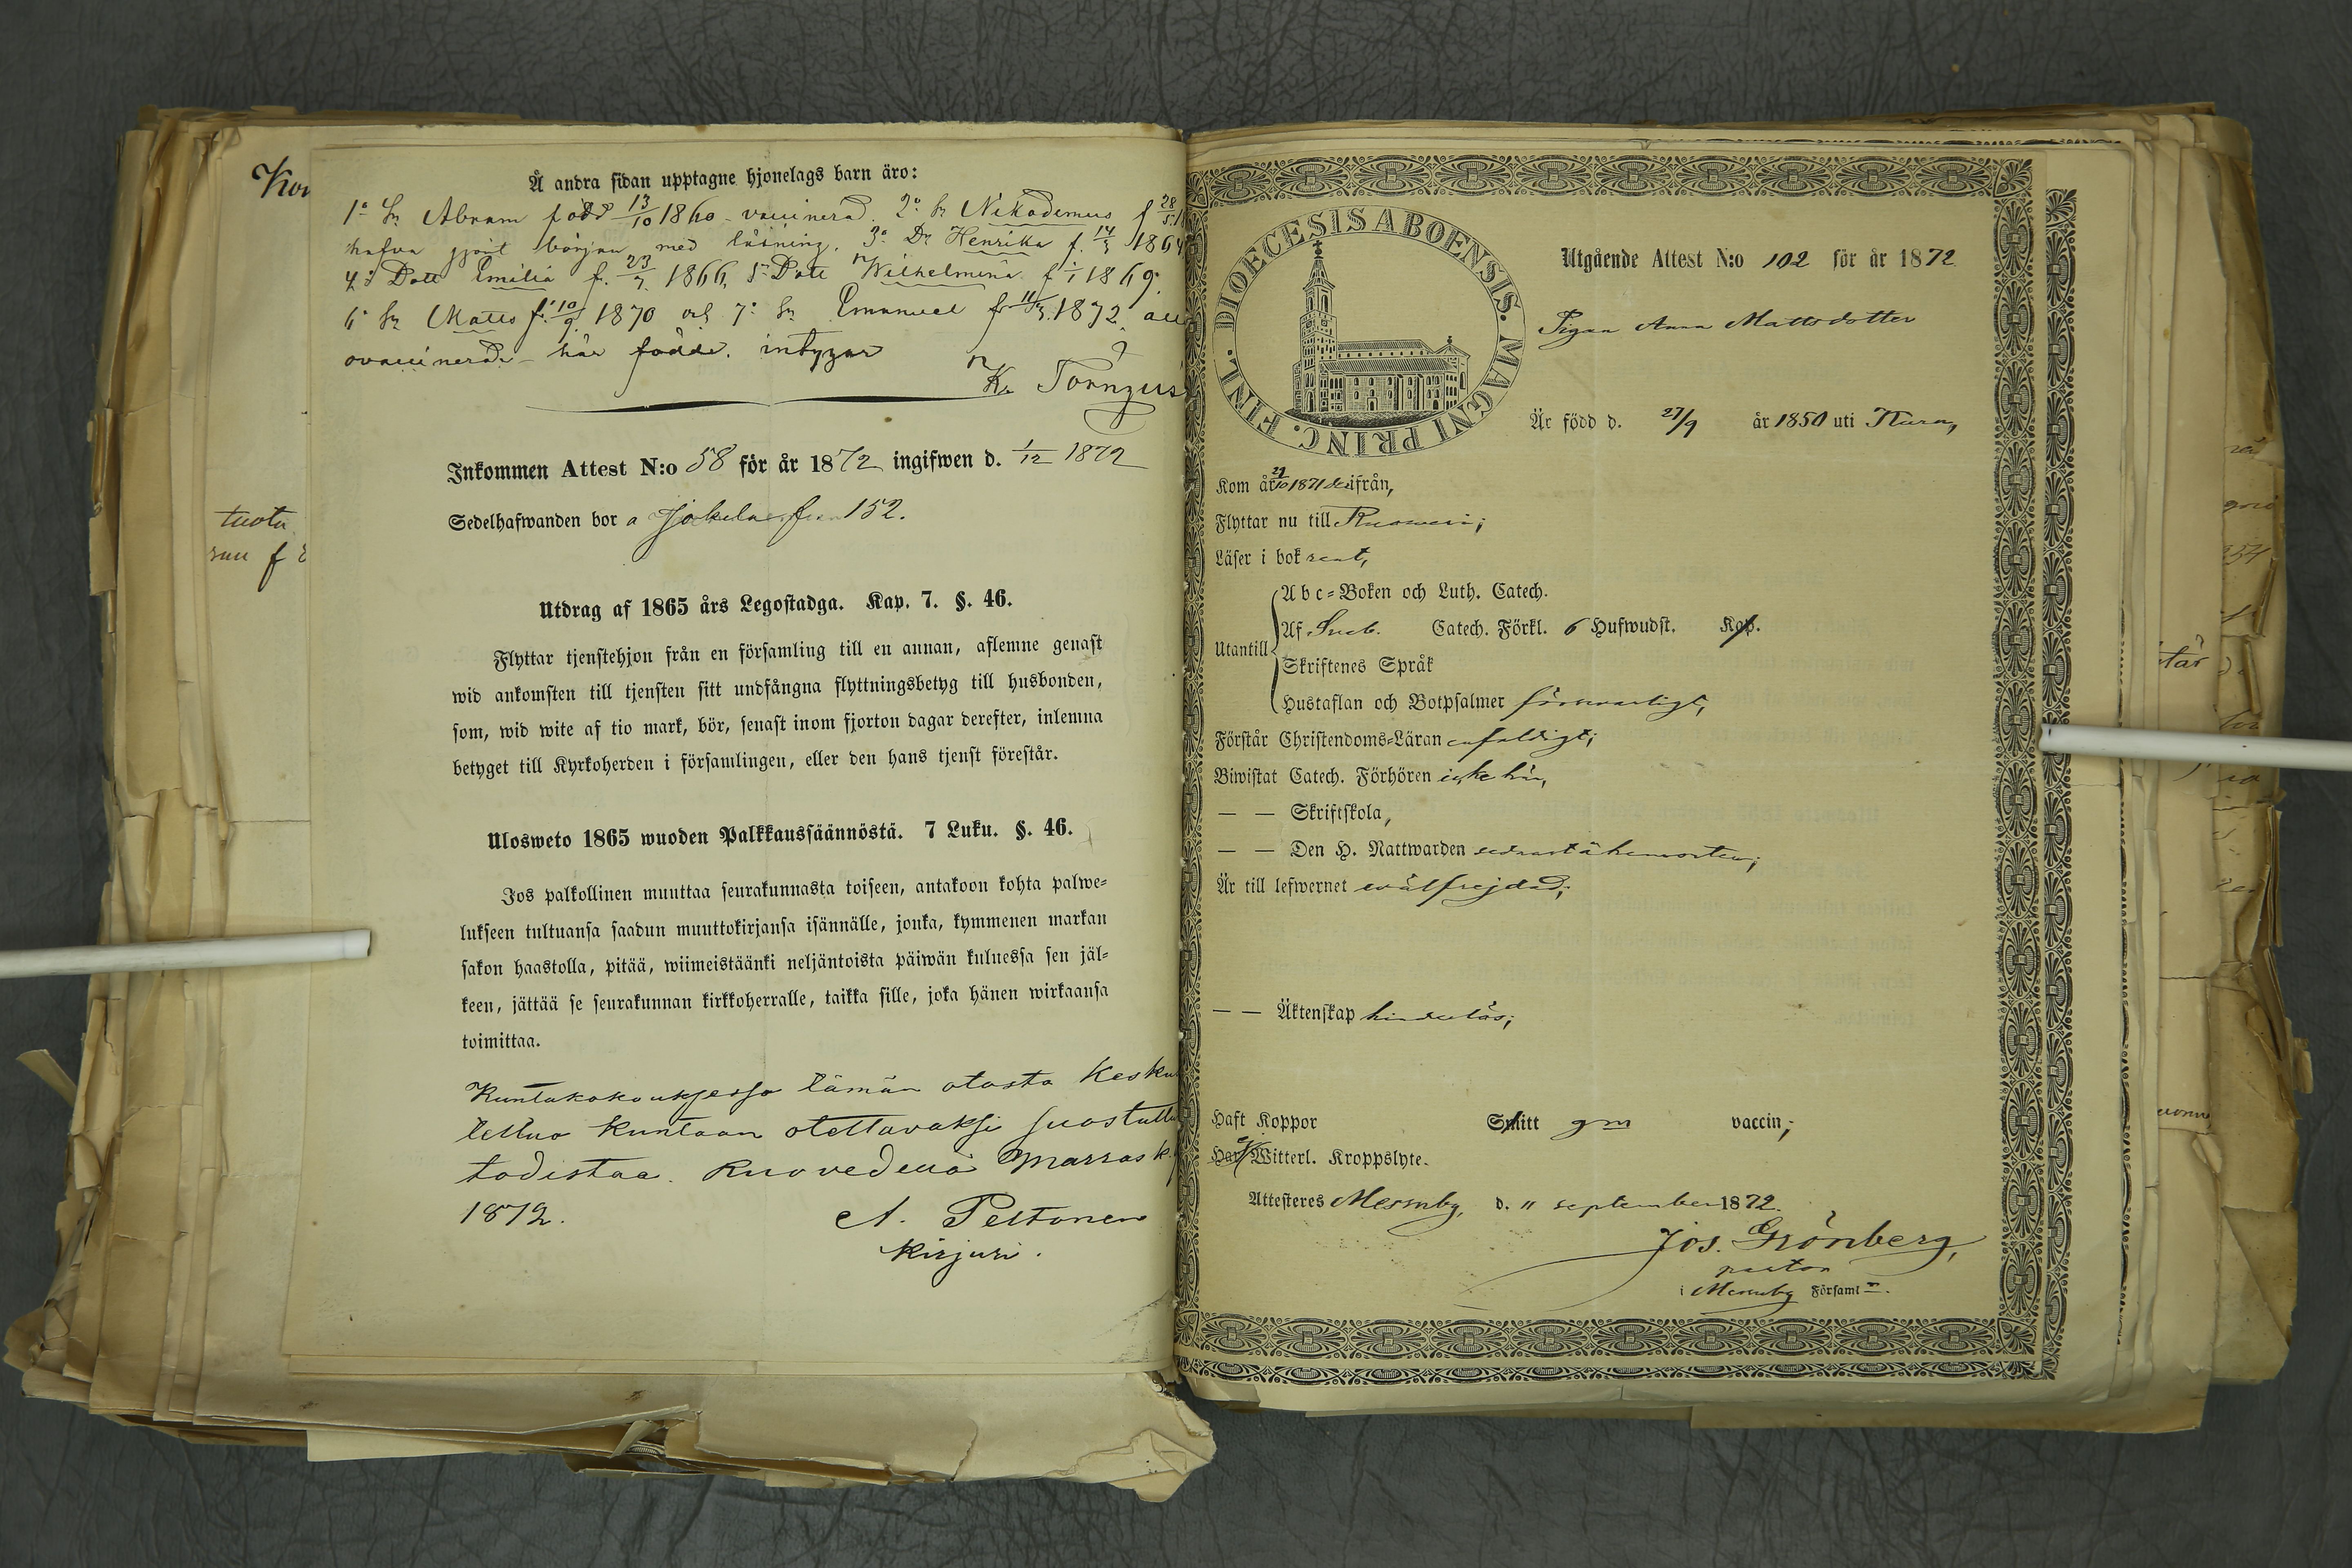 Kor
tuota
Å andra sidan upptagne hjonelags barn äro:
1° Sn Abram född 13/10 1860 - vaccinerad. 2° Sn Nikodemus f 28/5
hafva gjort början med läsning. 3° Dr Henrika f. 14/3 1864
4° Dott Emilia f. 23/7 1866, 5° Dott Wilhelmina f 1/1 1869.
6° Sn Matts f. 10/9 1870 och 7° Sn Emanuel f 11/3 1872, all
ovaccinerade - här födde. intygar
K. Tornzus
Inkommen Attest N:o 58 för år 1872 ingifwen d. 1/12 1872
Sedelhafwanden bor a Jokela 152.
Utdrag af 1865 års Legostadga. Kap. 7. §. 46.
Flyttar tjenstehjon från en församling till en annan, aflemne genast
wid ankomsten till tjensten sitt undfångna flyttningsbetyg till husbonden,
som, wid wite af tio mark, bör, senast inom fjorton dagar derefter, inlemna
betyget till Kyrkoherden i församlingen, eller den hans tjenst förestår.
Ulosweto 1865 wuoden Palkkaussäännöstä. 7 Luku. §. 46.
Jos palkollinen muuttaa seurakunnasta toiseen, antakoon kohta palwe-
lukseen tultuansa saadun muuttokirjansa isännälle, jonka, kymmenen markan
sakon haastolla, pitää, wiimeistäänki neljäntoista päiwän kuluessa sen jäl-
keen, jättää se seurakunnan kirkkoherralle, taikka sille, joka hänen wirkaansa
toimittaa.
Kuntakokouksessa tämän otosta Kesku
teltua kuntaan otettavaksi suostuttu
todistaa. Ruovedellä Marrask.
1872. A. Peltonen
Kirjuri.
DIOECESIS ABOENSIS. MAGNI PRINC. FINL.
Utgående Attest N:o 102 för år 1872
Pigan Anna Mattsdotter
Är född d. 27/9 år 1850 uti Kuru,
Kom år 21/10 1871 derifrån,
Flyttar nu till Ruowesi;
Läser i bok rent,
Abc-Boken och Luth. Catech.
Utantill Af Sveb. Catech. Förkl. 6 Hufwudst. Kap.
Skriftenes Språk
Hustaflan och Botpsalmer försvarligt,
Förstår Christendoms-Läran enfaldigt;
Biwistat Catech. Förhören icke här,
— — Skriftskola,
— — Den H. Nattwarden å hemorten;
Är till lefwernet wälfrejdad;
— — Äktenskap hinderlös;
Haft Koppor Smitt gm vaccin;
Har Witterl. Kroppslyte.
Attesteres Messuby, d. 11 september 1872.
Jos. Grönberg,
pastor
i Messuby Församl n.